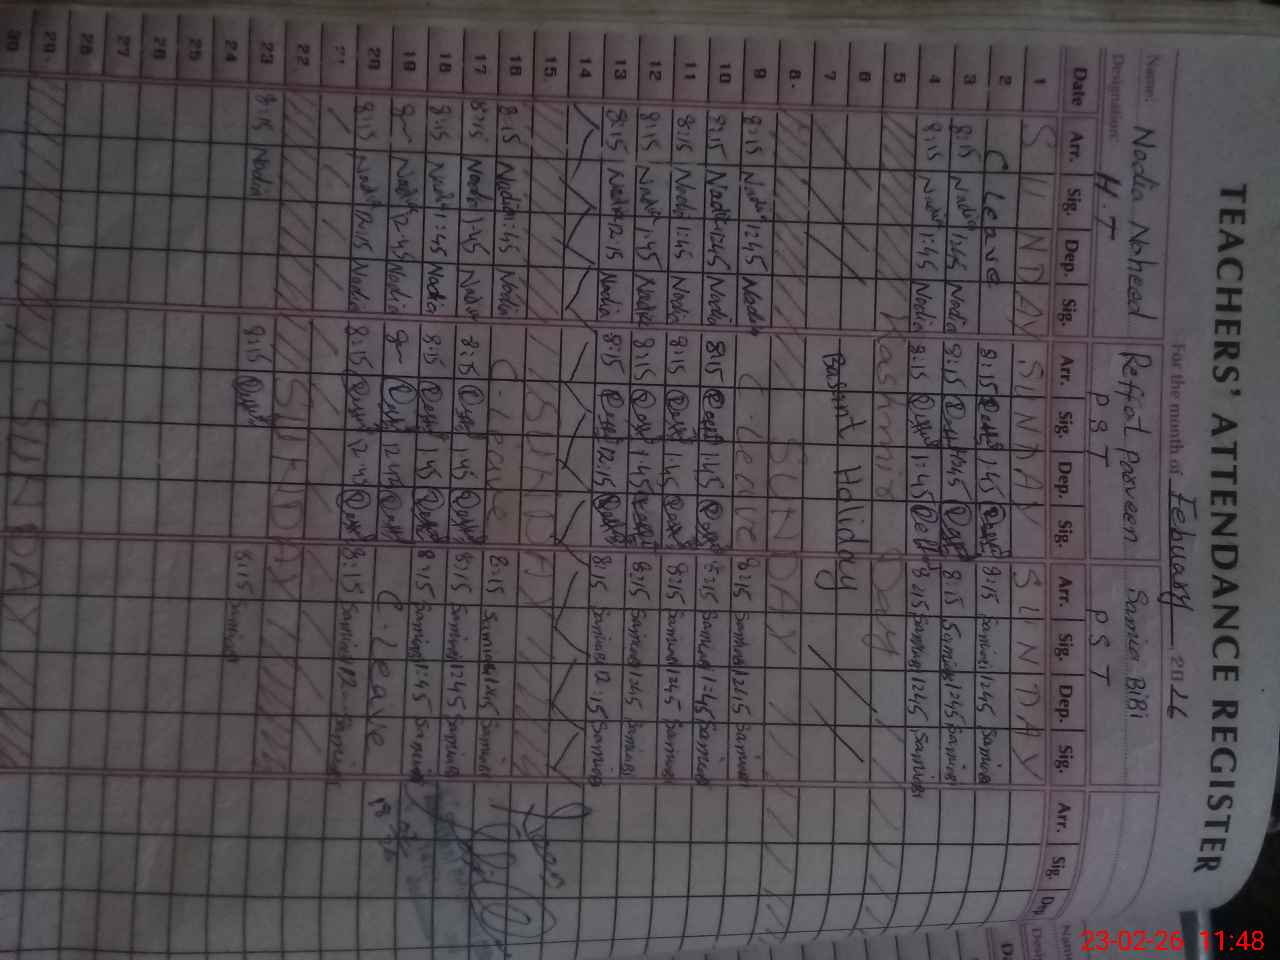 TEACHERS' ATTENDANCE REGISTER
For the month of Febuary 2026
Name: Nadia Naheed Reffat Parveen Samia BiBi
Designation: H.T PST PST
Date Arr. Sig. Dep. Sig. Arr. Sig. Dep. Sig. Arr. Sig. Dep. Sig. Arr. Sig.
1 SUNDAY SUNDAY SUNDAY
2 C Leave 8:15 1:45 8:15 Samina 1:45 Samina
3 8:15 Nadia 1:45 Nadia 8:15 1:45 8:15 Samina 1:45 Samina
4 8:15 Nadia 1:45 Nadia 8:15 1:45 8:15 Samina 1:45 Samina
5 Kashmir Day
6
7 Basant Holiday
8. SUNDAY
9 8:15 Nadia 1:45 Nadia C-Leave 8:15 Samina 1:45 Samina
10 8:15 Nadia 1:45 Nadia 8:15 1:45 8:15 Samina 1:45 Samina
11 8:15 Nadia 1:45 Nadia 8:15 1:45 8:15 Samina 1:45 Samina
12 8:15 Nadia 1:45 Nadia 8:15 1:45 8:15 Samina 1:45 Samina
13 8:15 Nadia 12:15 Nadia 8:15 12:15 8:15 Samina 12:15 Samina
14
15 SUNDAY
16 8:15 Nadia 1:45 Nadia C-Leave 8:15 Samina 1:45 Samina
17 8:15 Nadia 1:45 Nadia 8:15 1:45 8:15 Samina 1:45 Samina
18 8:15 Nadia 1:45 Nadia 8:15 1:45 8:15 Samina 1:45 Samina
19 Nadia 12:45 Nadia 12:45 C-Leave
20 8:15 Nadia 12:15 Nadia 8:15 12:45 8:15 Samina 12 Samina
21
22 SUNDAY
23 8:15 Nadia 8:15 8:15 Samina
24
25
26
27
28
29. SUNDAY
30
23-02-26 11:48